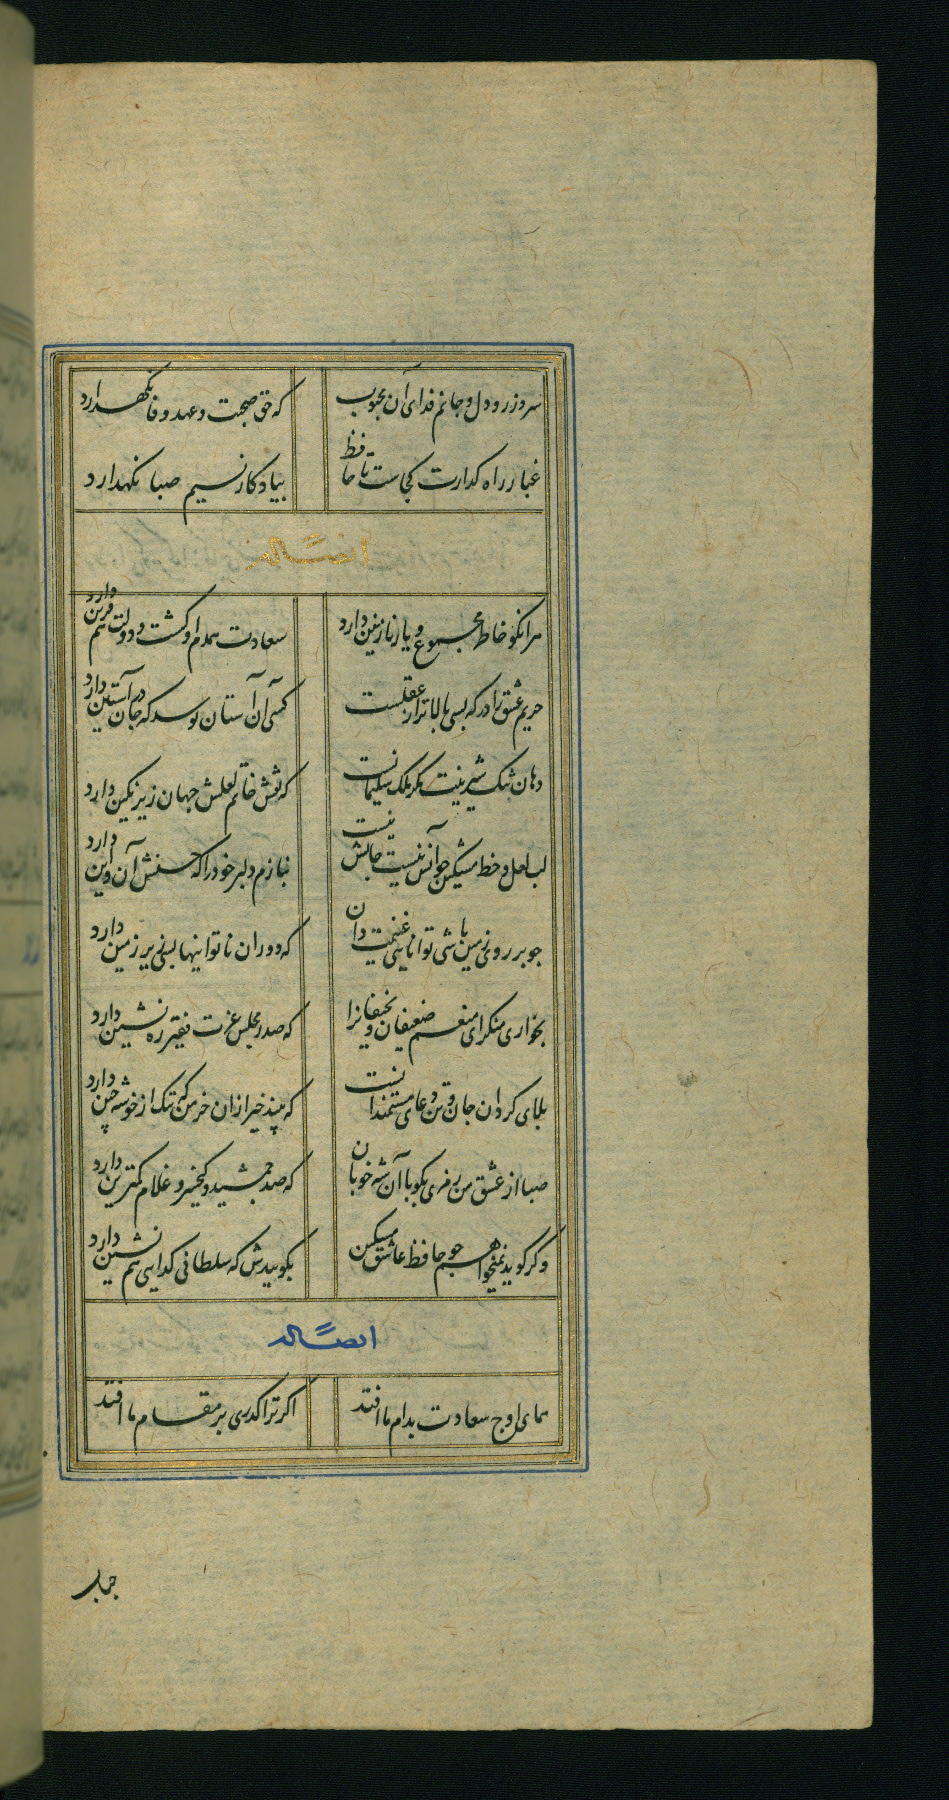 سر و زر و دل و جانم فدای آن محبوب که حق صحبت و عهد و وفا نگهدارد
غبار راه گذارت کجاست تا حافظ بیادگار نسیم صبا نگهدارد
ایضاً له
هر آنکو خاطر مجموع و یار نازنین دارد سعادت همدم او گشت و دولت هم قرین دارد
حریم عشق را درگه بسی بالاتر از عقلست کسی آن آستان بوسد که جان در آستین دارد
دهان تنگ شیرینت مگر ملک سلیمانست که نقش خاتم لعلش جهان زیر نگین دارد
لب لعل و خط مشکین جو آنش نیست جانش نیست بنازم دلبر خود را که حسنش آن و این دارد
جو بر روی زمین باشی توانایی غنیمت دان که دوران ناتوانیها بسی زیر زمین دارد
بخواری منگر ای منعم ضعیفان و نحیفانرا که صدر مجلس عزت فقیر ره نشین دارد
بلای گردان جان و تن دعای مستمندانست که بیند خیر از ان خرمن که ننگ از خوشه چین دارد
صبا از عشق من رمزی بگو با آن شه خوبان که صد جمشید و کیخسرو غلام کمترین دارد
و گر گوید نمیخواهم جو حافظ عاشق مسکین بگوییدش که سلطانی گدایی هم نشین دارد
ایضاً له
همای اوج سعادت بدام ما افتد اگر ترا گذری بر مقام ما افتد
حباب